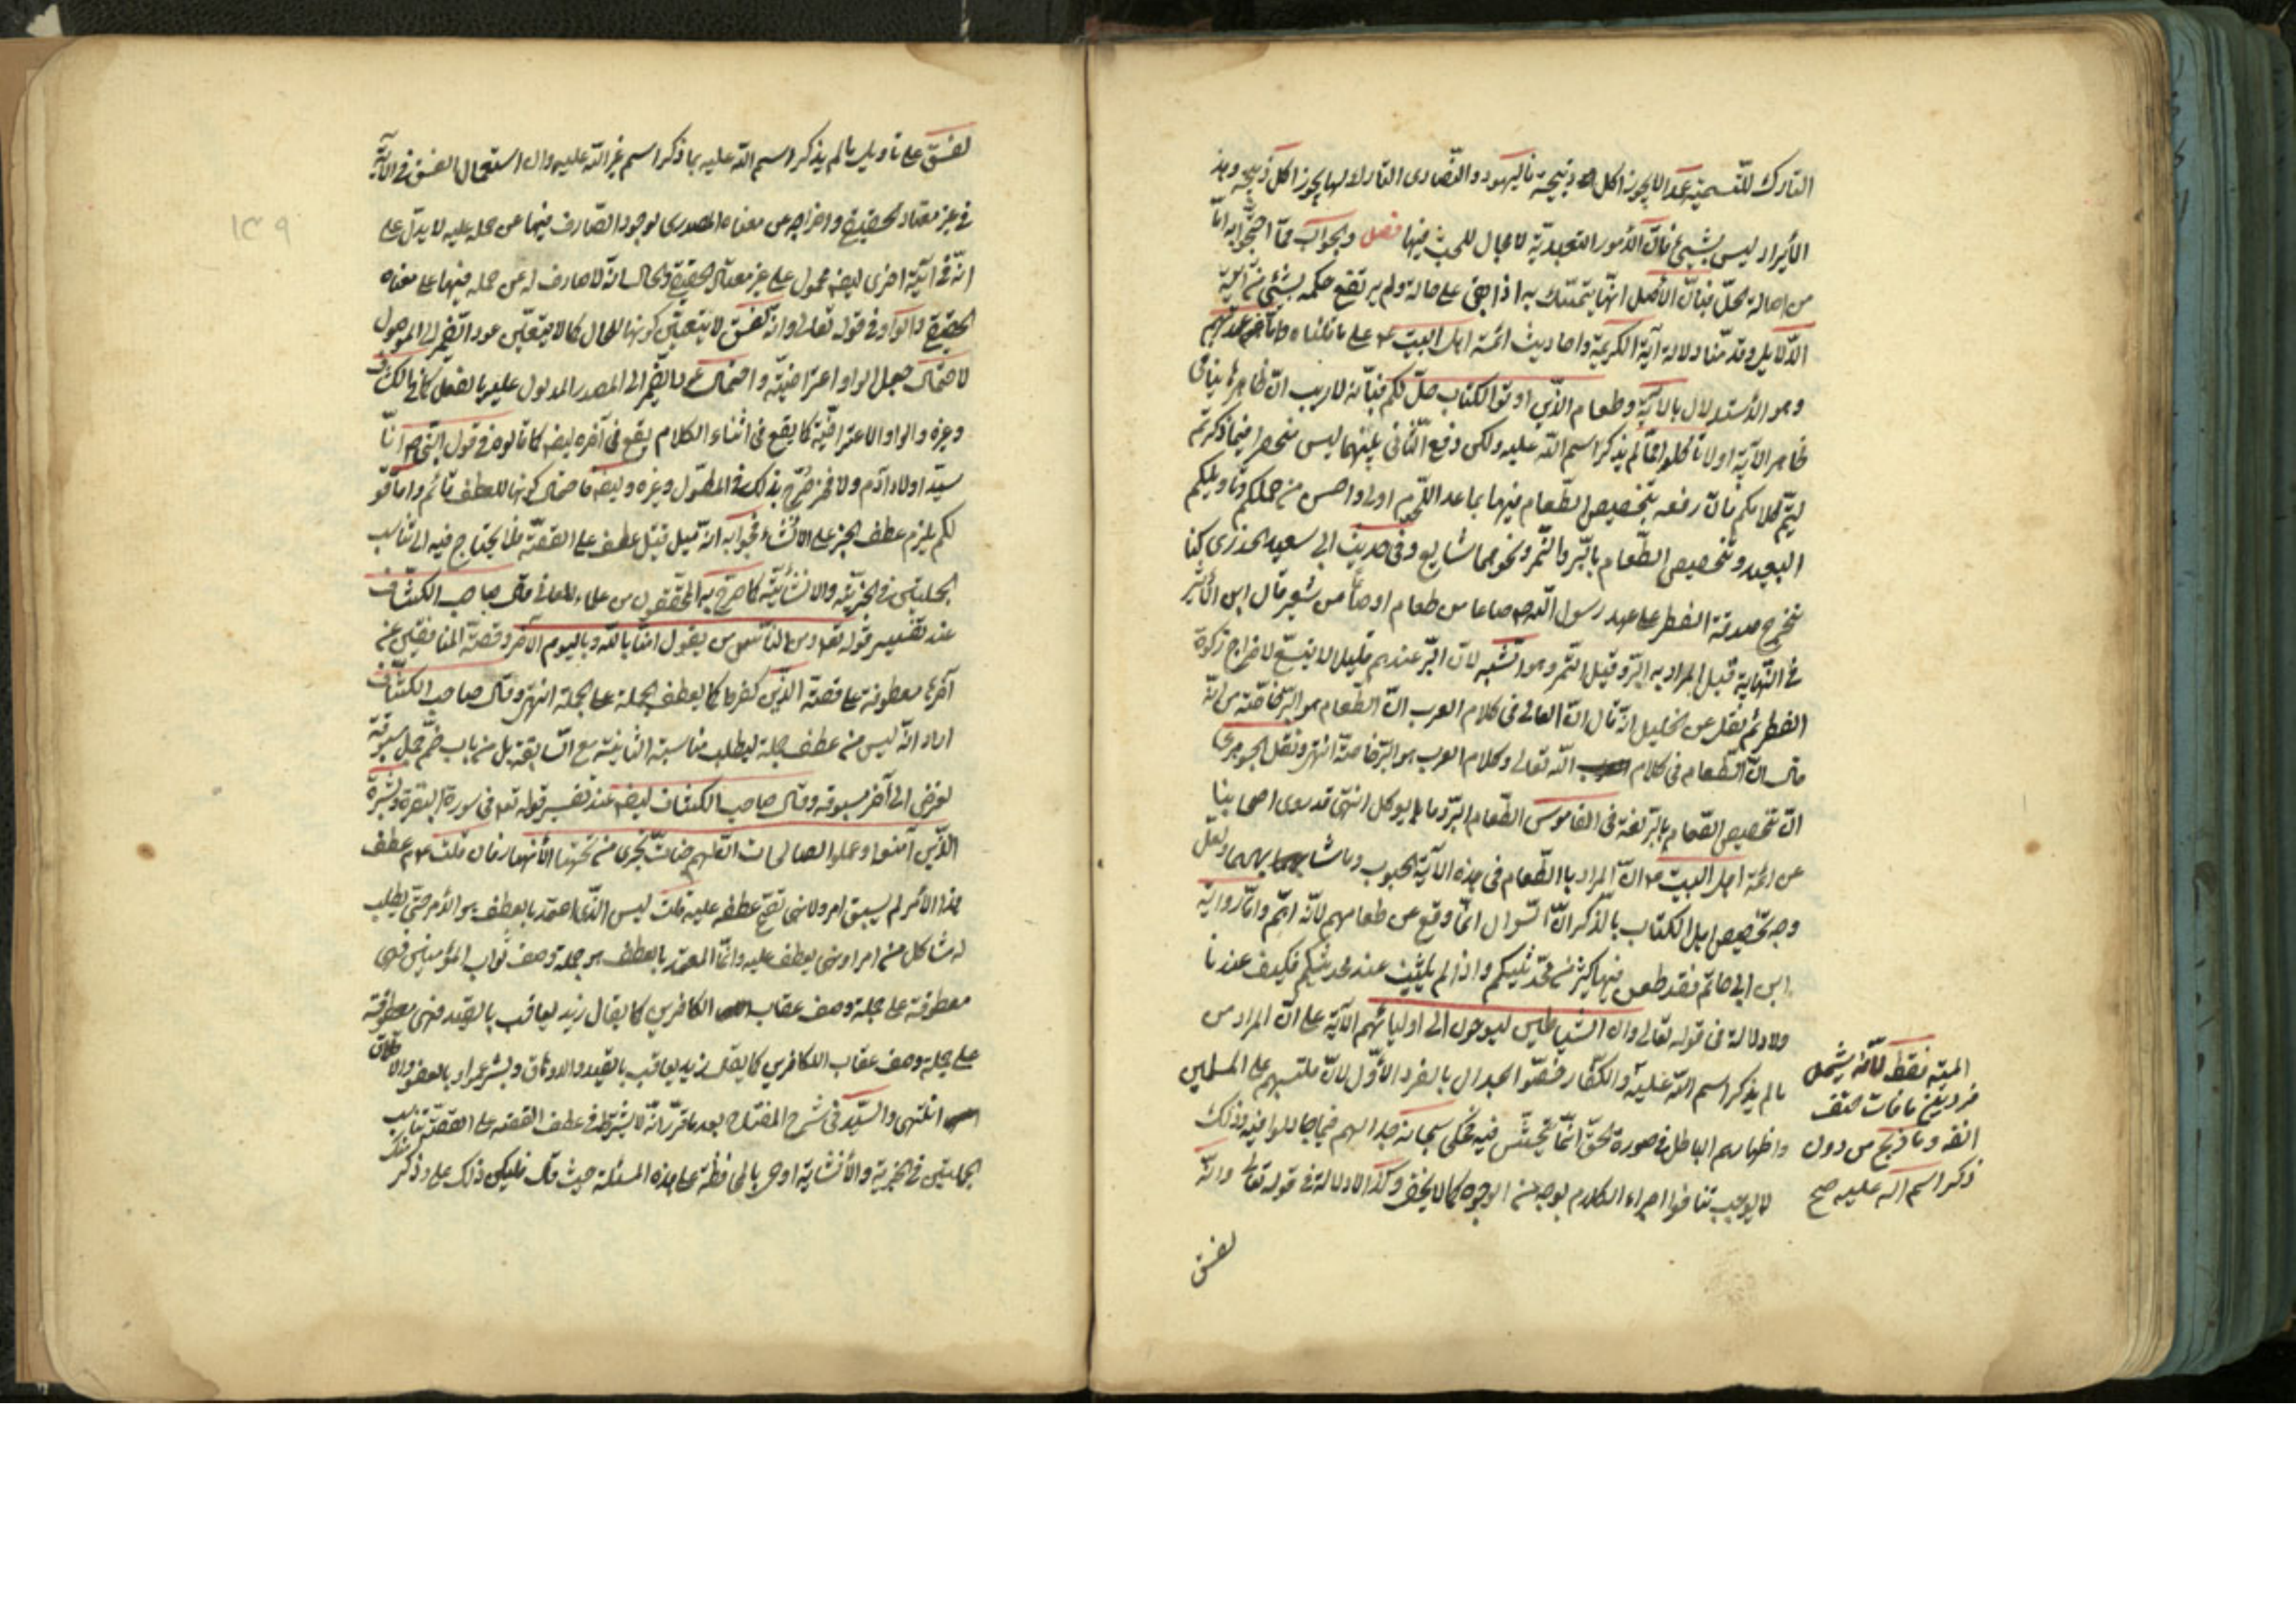 التارك للتسمية عمدا لا يجوز اكل ذبيحته فاليهود والنصارى التارك لها يجوز اكل ذبيحته وهذ
الأيراد ليس بشيئ فان الأمور التعبدية لا مجال للبحث فيها فصل والجواب عما احتجوا به اما
من اصالة الحل فبان الأصل انما يتمسك به اذا بقى على حاله ولم يرتفع حكمه بشيئ من ادلة
الدلايل وقد منا دلالة آية الكريمة واحاديث ائمة اهل البيت ع على ما قلناه واما
وهو الأستدلال بالاية وطعام الذين اوتوا الكتاب حل لكم فبأنه لا ريب ان ظاهرها ينافى
ظاهر الاية اولا تأكلوا مما لم يذكر اسم الله عليه ولكن دفع التنافى بينهما ليس منحصرا فيما ذكرتم
ليتم كلامكم فان رفعه بتخصيص الطعام فيها بما عدا اللحم اولى واحسن من حملكم وتاويلكم
البعيد وتخصيص الطعام بالبر والتمر ونحوهما شايع وفى حديث ابى سعيد الخدرى كنا
نخرج صدقة الفطر على عهد رسول الله ص صاعا من طعام او صاعا من شعير قال ابن الأثير
فى النهاية قيل المراد به البر وقيل التمر وهو اشبه لان البر عندهم قليلا لا يتسع لاخراج زكوة
الفطر ثم نقل عن الخليل انه قال ان العالى فى كلام العرب ان الطعام هو البر خاصة
قال ان الطعام فى كلام الله تعالى وكلام العرب هو البر خاصة انتهى ونقل الجوهرى
ان تخصيص الطعام بالبر لغة فى القاموس الطعام البر وما يوكل انتهى قد روى اصحابنا
عن ائمة اهل البيت ع ان المراد باالطعام فى هذه الاية الحبوب وما شابهها ولعل
وجه تخصيص اهل الكتاب بالذكر ان السوال انما وقع عن طعامهم لانه اهم واما رواية
ابن ابى حاتم فقد طعن فيها كثير من محدثيكم واذا لم يثبت عند محدثيكم فكيف عندنا
ولا دلالة فى قوله تعالى وان الشياطين ليوحون الى اوليائهم الآية على ان المراد من
مالم يذكر اسم الله عليه والكفار خصوا الجدال بالفرد الأول لان تلبسهم على المسلمين
واظهارهم الباطل فى صورة الحق انما يتمشى فيه فحكى سبحانه جدالهم فيما جادلوا فيه وذلك
لا يوجب تنافوا اجراء الكلام بوجه من الوجوه كما لا يخفى وكذا لا دلالة فى قوله تعالى وانه
الميتة فقط لأنه يشمل
فردين ما مات حتف
انفه وما ذبح من دون
ذكر اسم الله عليه صح
لفسق
١٤٩
لفسق على تاويل مالم يذكر اسم الله عليه بما ذكر اسم غير الله عليه وان استعمال الفسق فى الاية
فى غير معناه الحقيقى واخراجه عن معناه المصدرى لوجود الصارف فيها عن حمله عليه لا يدل على
انه فى آية اخرى ايضا محمول على غير معناه الحقيقى والحال انه لا صارف له عن حمله فيها على معناه
الحقيقى والواو فى قوله تعالى وانه لفسق لا يتعين كونها للحال كما لا يتعين عود الضمير الى الموصول
لاحتمال جعل الواو اعتراضية واحتمال عود الضمير الى المصدر المدلول عليه بالفعل كما فى الكشاف
وغيره والواو الاعتراضية كما يقع فى اثناء الكلام يقع فى آخره ايضا كما قالوه فى قول النبى ص انا
سيد اولاد آدم ولا فخر صرح بذلك فى المطول وغيره وايضا فاحتمال كونها للعطف قائم واما قو
لكم يلزم عطف الخبر على الانشاء فجوابه انه قيل قبيل عطف على القصة فلا يحتاج فيه الى تناسب
الجملتين فى الخبرية والانشائية كما صرح به المحققون من علماء المعانى قال صاحب الكشاف
عند تفسير قوله تعالى ومن الناس من يقول امنا بالله وباليوم الآخر وقصة المنافقين عن
آخرها معطوفة على قصة الذين كفروا كما يعطف الجملة على الجملة انتهى وقال صاحب الكشاف
اراد انه ليس من عطف جملة ليطلب مناسبة الثانية مع السابقة بل من باب ضم جمل مسوقة
لغرض الى آخر مسوقه وقال صاحب الكشاف ايضا عند تفسير قوله تعالى فى سورة البقرة وبشر
الذين آمنوا وعملوا الصالحات ان لهم جنات تجرى من تحتها الأنهار فان قلت علام عطف
هذا الأمر لم يسبق امر ولا نهى تصح عطفه عليه قلت ليس الذى اعتمد بالعطف هو الأمر حتى يطلب
له مشاكل من امر او نهى يعطف عليه وانما المعتمد بالعطف هو جملة وصف ثواب المؤمنين فهى
معطوفة على جملة وصف عقاب الكافرين كما يقال زيد يعاقب بالقيد فهى معطوفة
على جملة وصف عقاب الكافرين كما يقال زيد يعاقب بالقيد والاوثاق وبشر عمرا بالعفو والاطلاق
انتهى والسيد فى شرح المفتاح بعد ما قرر انه لا يشترط فى عطف القصة على القصة تناسب
الجملتين فى الخبرية والأنشائية اوصى بالمحافظة على هذه المسئلة حيث قال فليكن ذلك على ذكر منك